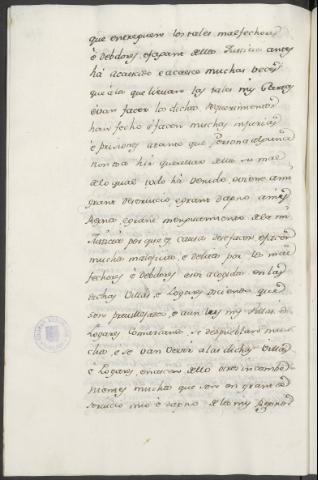 que entreguen los tales malfechores
e debdores, e fagan dellos Justicia antes
há acaescido e acaesce muchas veces
que a los que llevan las tales mis Cartas
e van facer los dichos requerimientos
han fecho e facen muchas injurias
e prisiones, a tanto que persona alguna
non osa hir querellar dello nin mas
de lo qual todo há venido, e viene a mi
grant deservicio, e grant dapno a mis
Regnos, e grant menguamiento de la mi
Justicia, por que por causa de se facer, e facen
muchos maleficios e delitos por los mal
fechores e debdores ser acogidos en las
dichas Villas e Logares diciendo que
son previllejados, e aun las mis Villas e
Logares Comarcanos se despueblan mu
cho, e se van vevir a las dichas Villas
e Logares, e nascen dello otros inconbe
nientes muchos que son en grant de
servicio mio e dapno de los mis Regnos